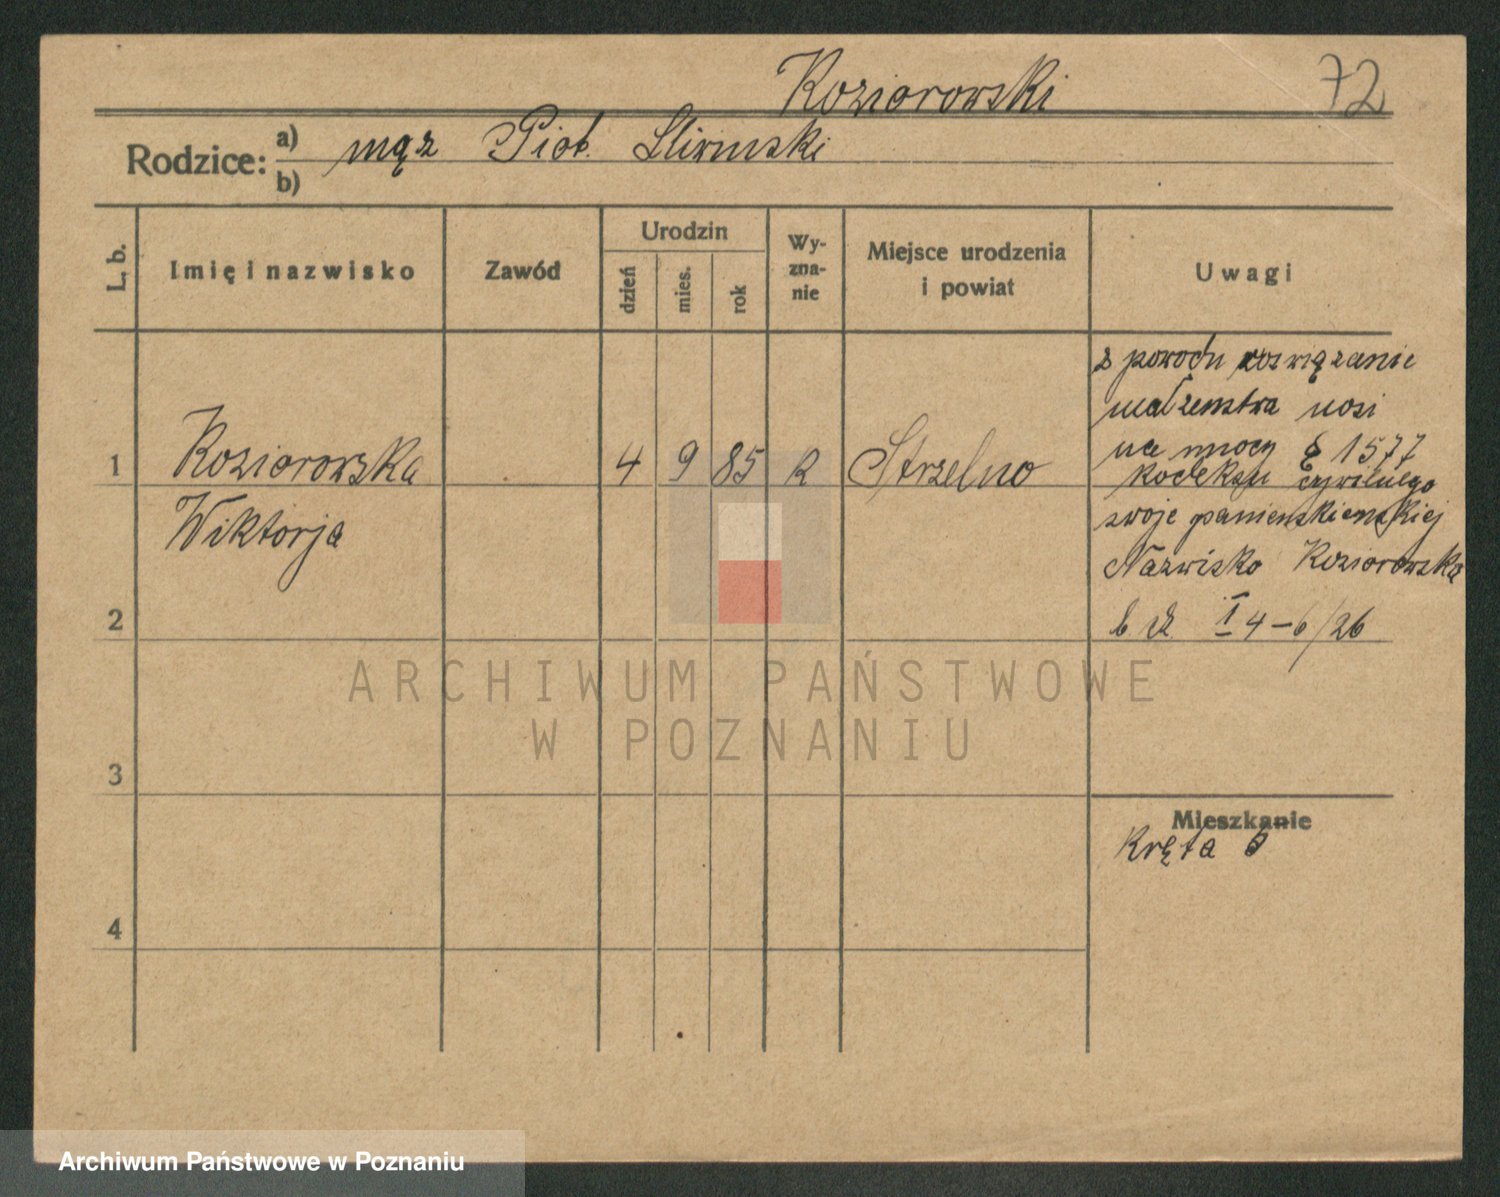 Koziorowski
72
Rodzice: a) mąz Piot. Sliwinski
b)
L. b.
Imię i nazwisko
Zawód
Urodzin
dzień
mies.
rok
Wy-
zna-
nie
Miejsce urodzenia
i powiat
Uwagi
z powodu rozwiązanie
małzenstwa nosi
na mocy § 1577
kodeksu cywilnego
swoje panienskienskiej
Nazwisko Koziorowska
I 4-6/26
1 Koziorowska 4 9 85 R Strzelno
Wiktorja
2
3
4
Mieszkanie
Kręta
ARCHIWUM PAŃSTWOWE
W POZNANIU
Archiwum Państwowe w Poznaniu